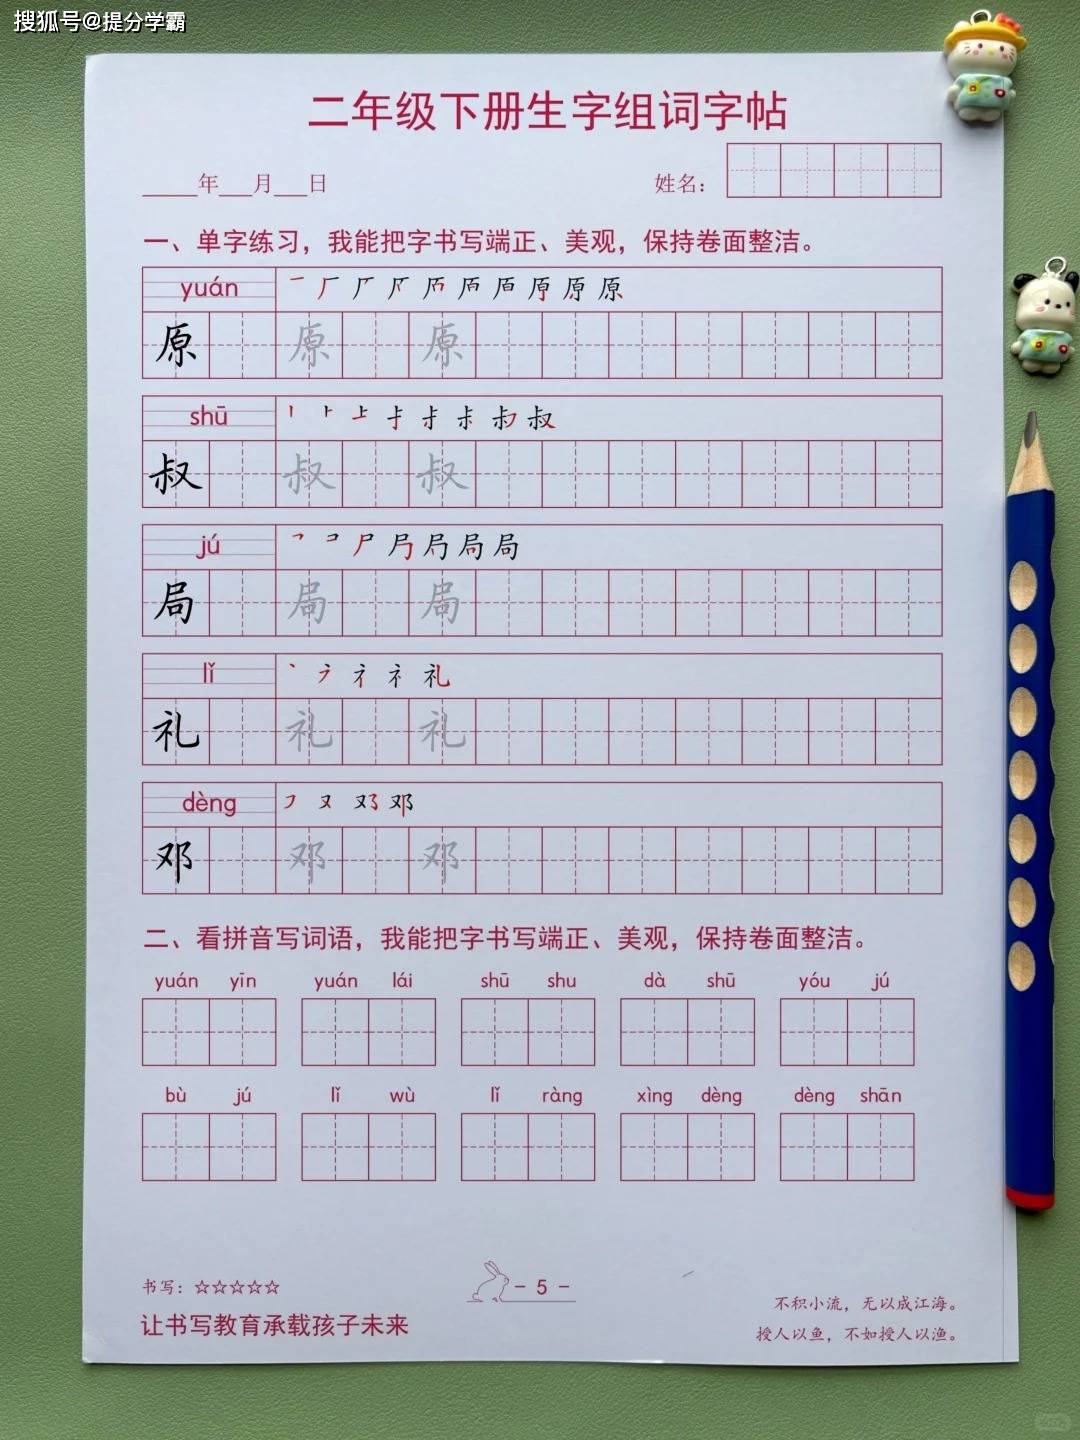 搜狐号@提分学霸
二年级下册生字组词字帖
_____年___月___日 姓名：
一、单字练习，我能把字书写端正、美观，保持卷面整洁。
yuán
原 原 原
shū
叔 叔 叔
jú
局 局 局
lǐ
礼 礼 礼
dèng
邓 邓 邓
二、看拼音写词语，我能把字书写端正、美观，保持卷面整洁。
yuán yīn yuán lái shū shu dà shū yóu jú
bù jú lǐ wù lǐ ràng xìng dèng dèng shān
书写：☆☆☆☆☆
- 5 -
不积小流，无以成江海。
让书写教育承载孩子未来
授人以鱼，不如授人以渔。